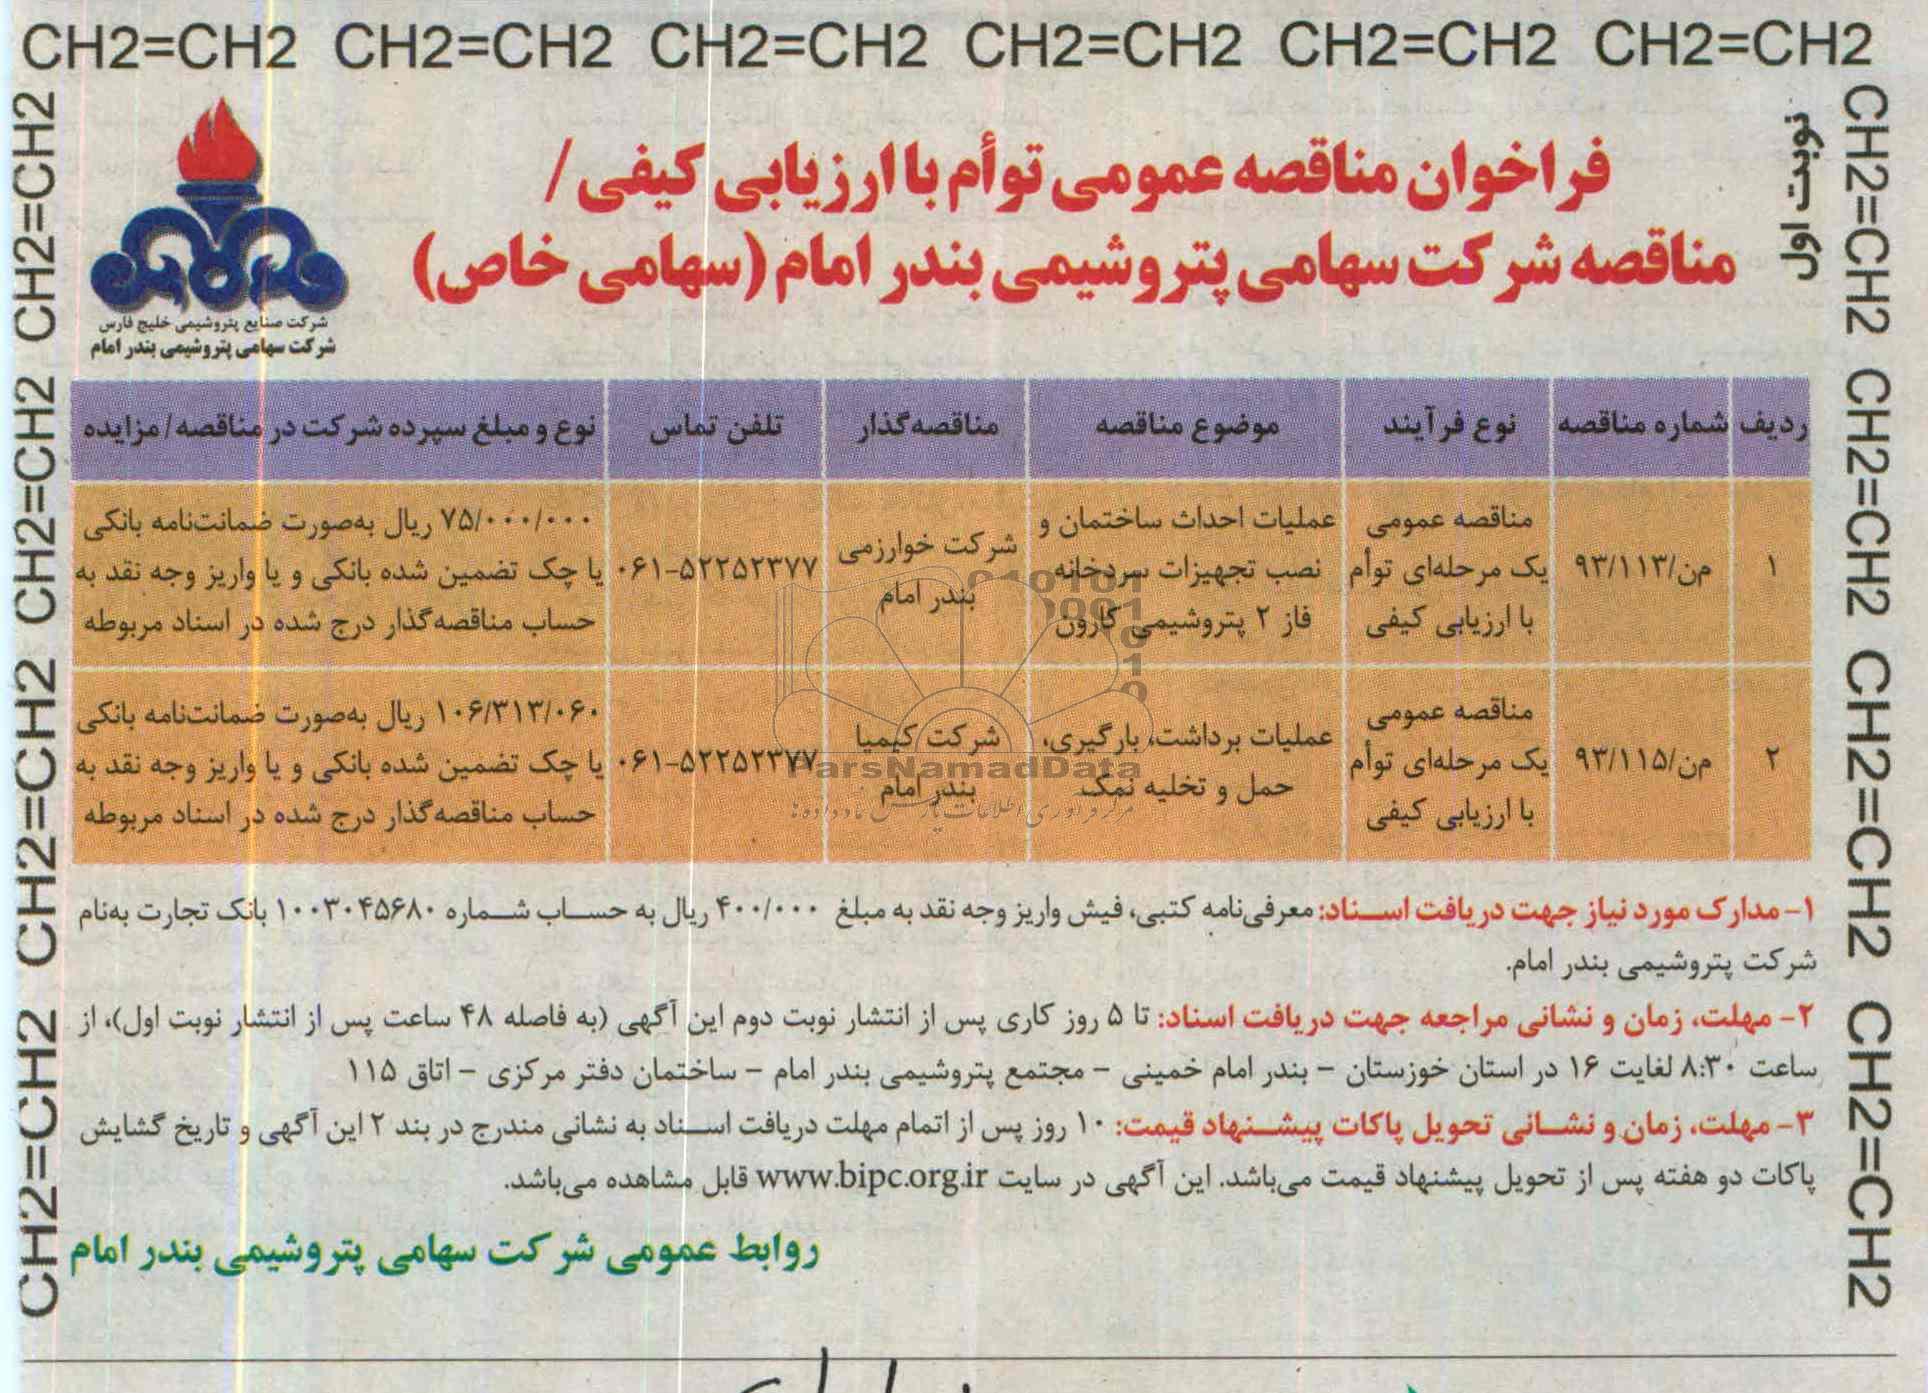 CH2=CH2 CH2=CH2 CH2=CH2 CH2=CH2 CH2=CH2 CH2=CH2
CH2=CH2 CH2=CH2 CH2=CH2 CH2=CH2
CH2=CH2 CH2=CH2 CH2=CH2 CH2=CH2
نوبت اول
فراخوان مناقصه عمومی توأم با ارزیابی کیفی /
مناقصه شرکت سهامی پتروشیمی بندر امام (سهامی خاص)
شرکت صنایع پتروشیمی خلیج فارس
شرکت سهامی پتروشیمی بندر امام
ردیف شماره مناقصه نوع فرآیند موضوع مناقصه مناقصه‌گذار تلفن تماس نوع و مبلغ سپرده شرکت در مناقصه/مزایده
۱ م‌ن/۹۳/۱۱۳
مناقصه عمومی
یک مرحله‌ای توأم
با ارزیابی کیفی
عملیات احداث ساختمان و
نصب تجهیزات سردخانه
فاز ۲ پتروشیمی کارون
شرکت خوارزمی
بندر امام
۰۶۱-۵۲۲۵۲۳۷۷
۷۵/۰۰۰/۰۰۰ ریال به‌صورت ضمانت‌نامه بانکی
یا چک تضمین شده بانکی و یا واریز وجه نقد به
حساب مناقصه‌گذار درج شده در اسناد مربوطه
۲ م‌ن/۹۳/۱۱۵
مناقصه عمومی
یک مرحله‌ای توأم
با ارزیابی کیفی
عملیات برداشت، بارگیری،
حمل و تخلیه نمک
شرکت کیمیا
بندر امام
۰۶۱-۵۲۲۵۲۳۷۷
۱۰۶/۳۱۳/۰۶۰ ریال به‌صورت ضمانت‌نامه بانکی
یا چک تضمین شده بانکی و یا واریز وجه نقد به
حساب مناقصه‌گذار درج شده در اسناد مربوطه
ParsNamadData
۱- مدارک مورد نیاز جهت دریافت اسناد: معرفی‌نامه کتبی، فیش واریز وجه نقد به مبلغ ۴۰۰/۰۰۰ ریال به حساب شماره ۱۰۰۳۰۴۵۶۸۰ بانک تجارت به‌نام
شرکت پتروشیمی بندر امام.
۲- مهلت، زمان و نشانی مراجعه جهت دریافت اسناد: تا ۵ روز کاری پس از انتشار نوبت دوم این آگهی (به فاصله ۴۸ ساعت پس از انتشار نوبت اول)، از
ساعت ۸:۳۰ لغایت ۱۶ در استان خوزستان – بندر امام خمینی – مجتمع پتروشیمی بندر امام – ساختمان دفتر مرکزی – اتاق ۱۱۵
۳- مهلت، زمان و نشانی تحویل پاکات پیشنهاد قیمت: ۱۰ روز پس از اتمام مهلت دریافت اسناد به نشانی مندرج در بند ۲ این آگهی و تاریخ گشایش
پاکات دو هفته پس از تحویل پیشنهاد قیمت می‌باشد. این آگهی در سایت www.bipc.org.ir قابل مشاهده می‌باشد.
روابط عمومی شرکت سهامی پتروشیمی بندر امام